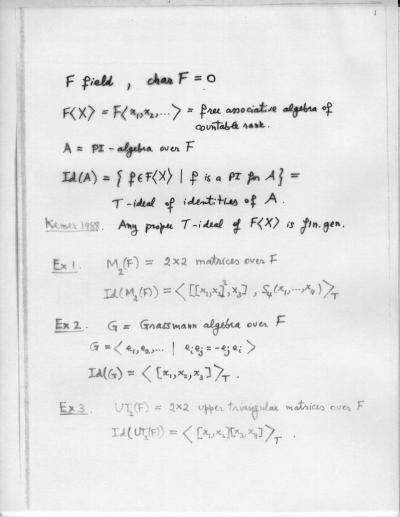 1
F field , char F = 0
F⟨X⟩ = F⟨x₁,x₂,...⟩ = free associative algebra of
countable rank.
A = PI-algebra over F
Id(A) = { f ∈ F⟨X⟩ | f is a PI for A } =
T-ideal of identities of A .
Kemer 1988. Any proper T-ideal of F⟨X⟩ is fin. gen.
Ex 1. M₂(F) = 2×2 matrices over F
Id(M₂(F)) = ⟨ [[x₁,x₂]²,x₃] , S₄(x₁,...,x₄) ⟩_T
Ex 2. G = Grassmann algebra over F
G = ⟨ e₁,e₂,... | eᵢeⱼ = -eⱼeᵢ ⟩
Id(G) = ⟨ [x₁,x₂,x₃] ⟩_T .
Ex 3. UT₂(F) = 2×2 upper triangular matrices over F
Id(UT₂(F)) = ⟨ [x₁,x₂][x₃,x₄] ⟩_T .